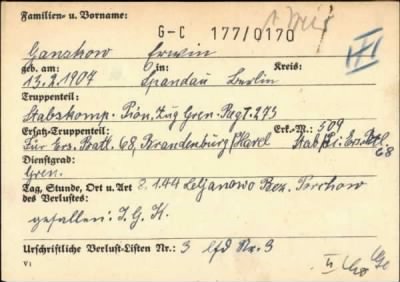 Familien- u. Vorname:
G-C 177/0170
Ganzkow Erwin
geb. am: in: Kreis:
13.2.1907 Spandau Berlin
Truppenteil:
Stabskomp. Pion. Zug Gren. Regt. 273
Ersatz-Truppenteil: Erk.-M.: 509
Für Ers. Batl. 68, Brandenburg/Havel Stab Ers. Batl. 68
Dienstgrad:
Gren.
Tag, Stunde, Ort u. Art 2.1.44 Bez. Porchow
des Verlustes:
gefallen. I. G. K.
Urschriftliche Verlust-Listen Nr.: 3 lfd Nr. 3
V1